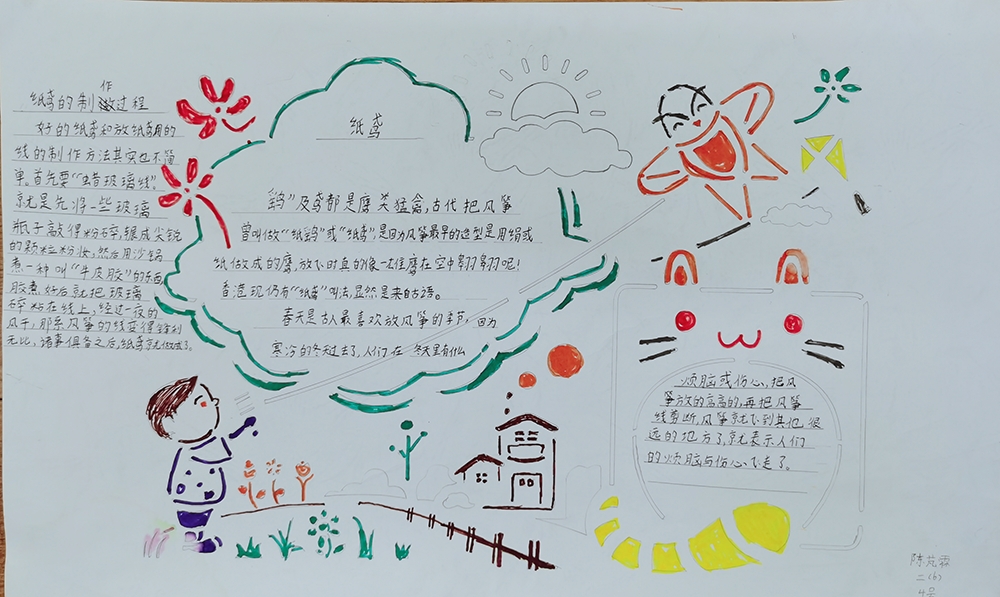 纸鸢的制作过程
好的纸鸢和放纸鸢用的
线的制作方法其实也不简
单。首先要“蜡玻璃线”。
就是先将一些玻璃
瓶子敲得粉碎，辗成尖锐
的颗粒粉妆，然后用沙锅
煮一种叫“牛皮胶”的东西
胶煮好后就把玻璃
碎粘在线上，经过一夜的
风干，那条风筝的线变得锋利
无比，诸事俱备之后，纸鸢就做成了。
纸鸢
鹞”及鸢都是鹰类猛禽，古代把风筝
曾叫做“纸鹞”或“纸鸢”，是因为风筝最早的造型是用绢或
纸做成的鹰，放飞时真的像一只佳鹰在空中翱翔呢！
香港现仍有“纸鸢”叫法，显然是来的古语。
春天是古人最喜欢放风筝的季节，因为
寒冷的冬天过去了，人们在冬天里有什么
烦脑或伤心，把风
筝放的高高的，再把风筝
线剪断，风筝就飞到其他很
远的地方了，就表示人们
的烦脑与伤心飞走了。
二(6)
4号